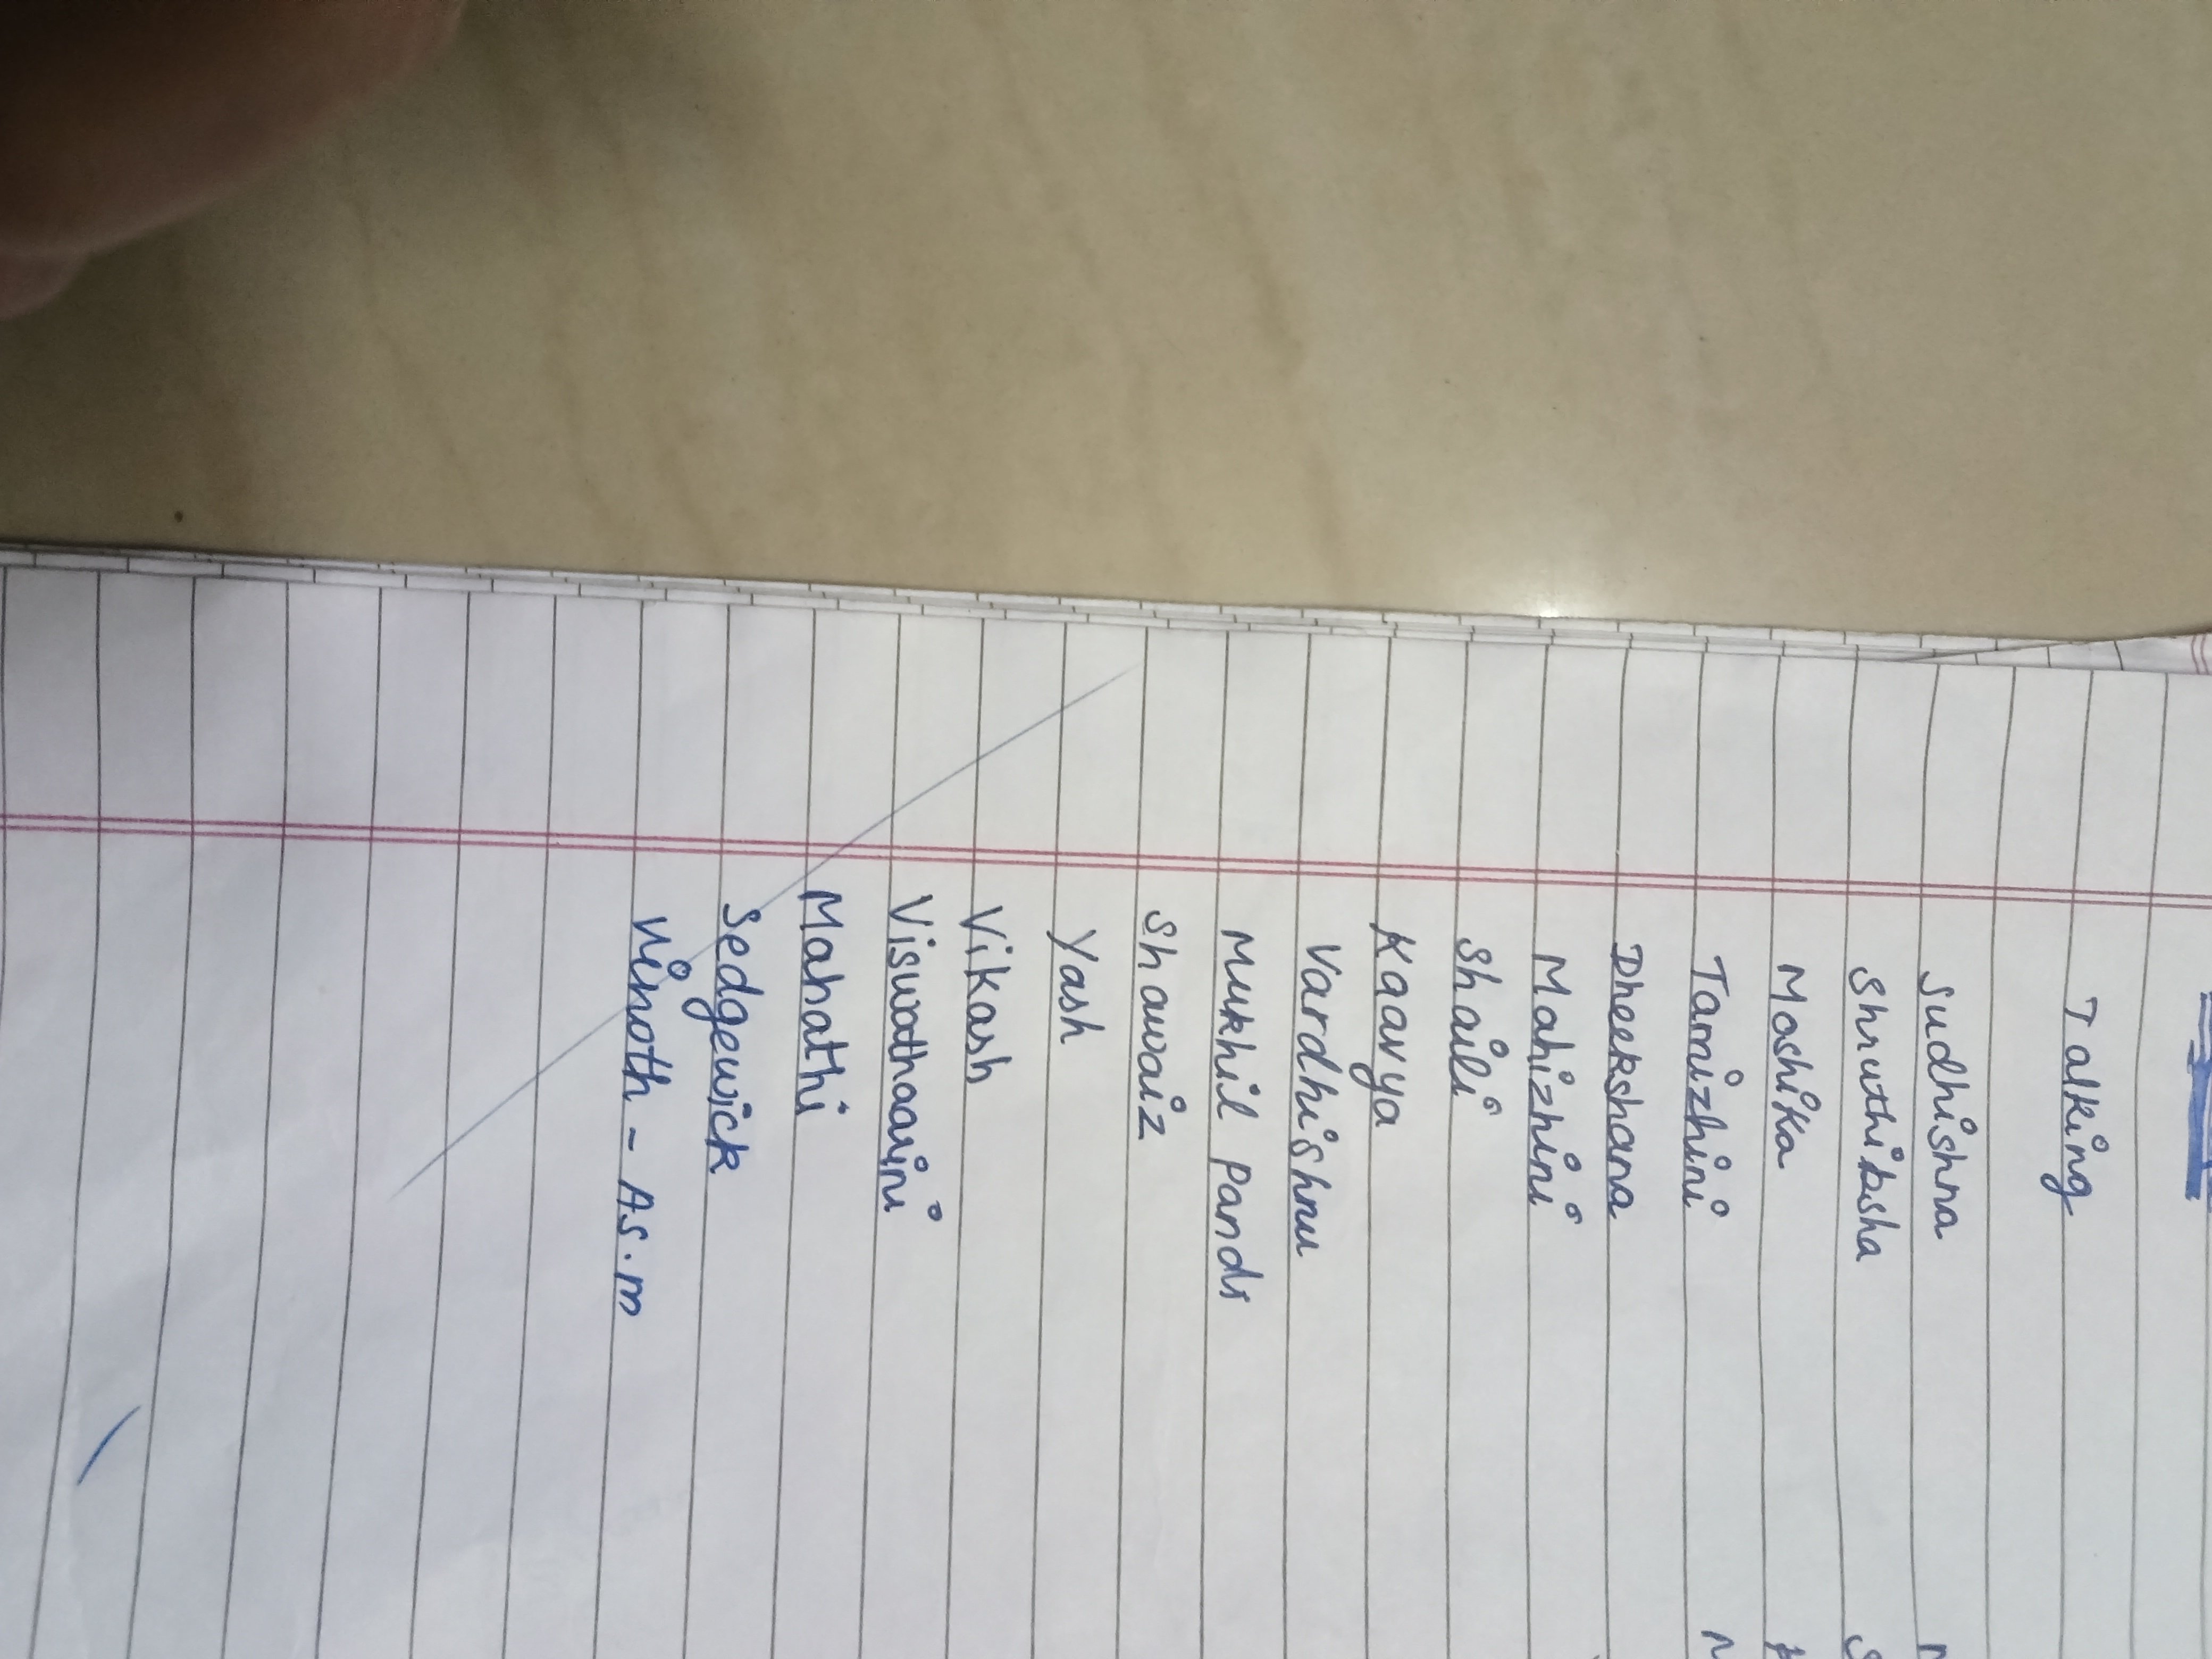 Talking
Sudhishna
Shruthiksha
Moshika
Tamizhini
Dheekshana
Mahizhini
Shaili
Kaavya
Vardhishnu
Mukhil Pandi
Shawaiz
Yash
Vikash
Viswathaarini
Manathi
Sedgewick
Vinoth - AS.m